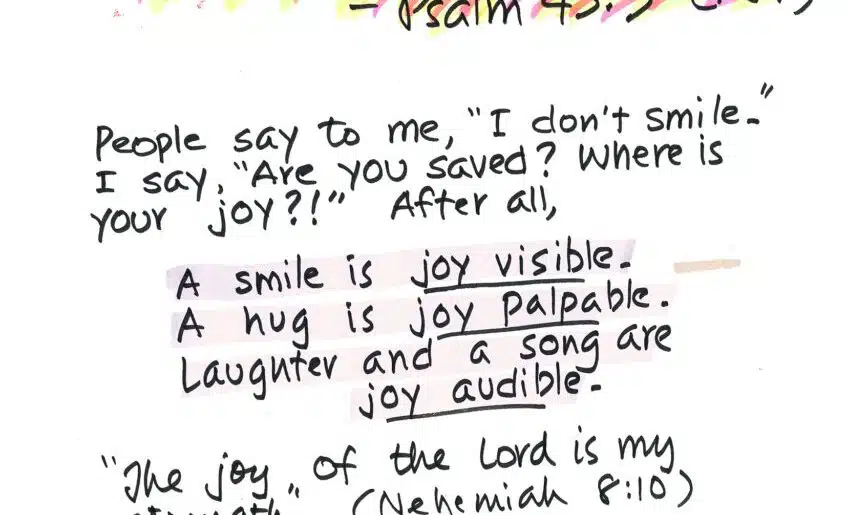 - Psalm
People say to me, "I don't smile."
I say, "Are you saved? Where is
your joy?!" After all,
A smile is joy visible.
A hug is joy palpable.
Laughter and a song are
joy audible.
"The joy of the Lord is my
strength." (Nehemiah 8:10)